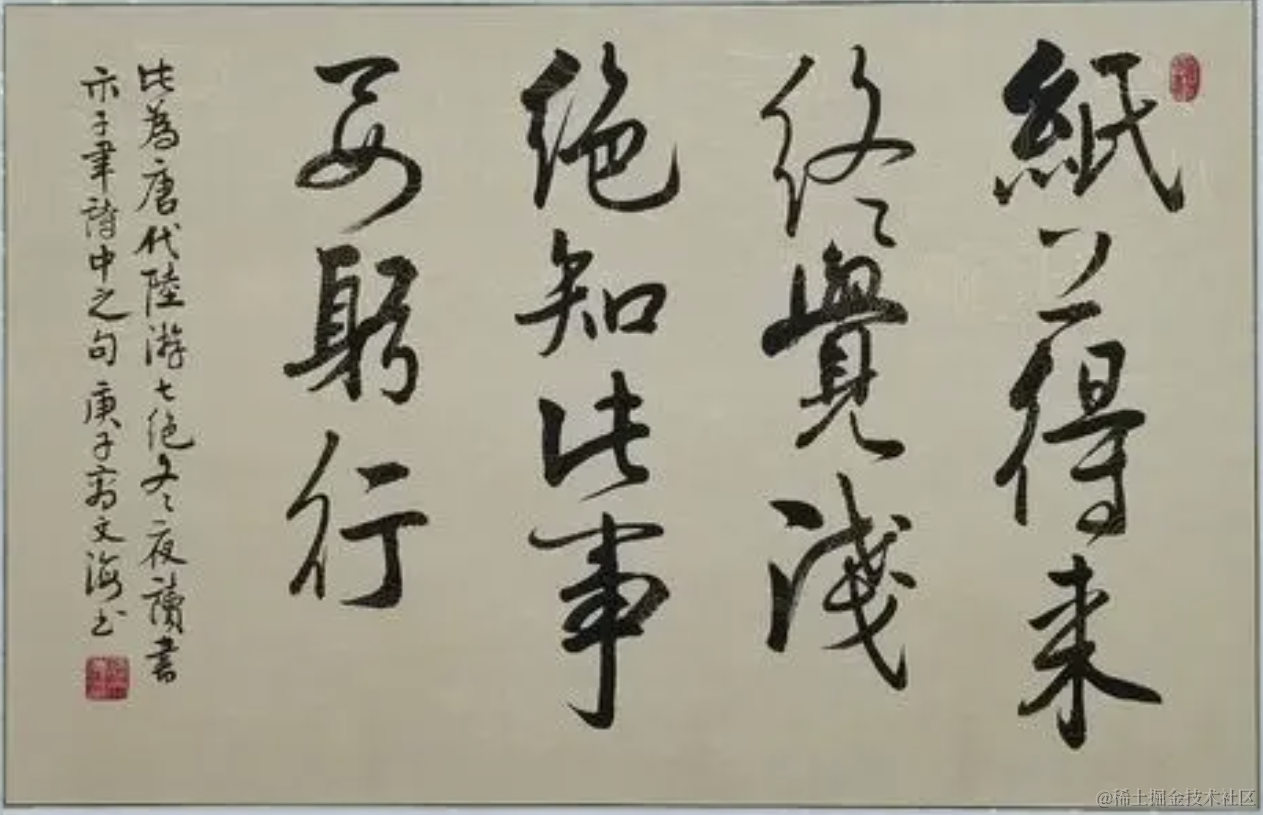 紙上得来
終覺淺
絶知此事
要躬行
此為唐代陸游七絶冬夜讀書
示子聿詩中之句庚子斋文海书
@稀土掘金技术社区